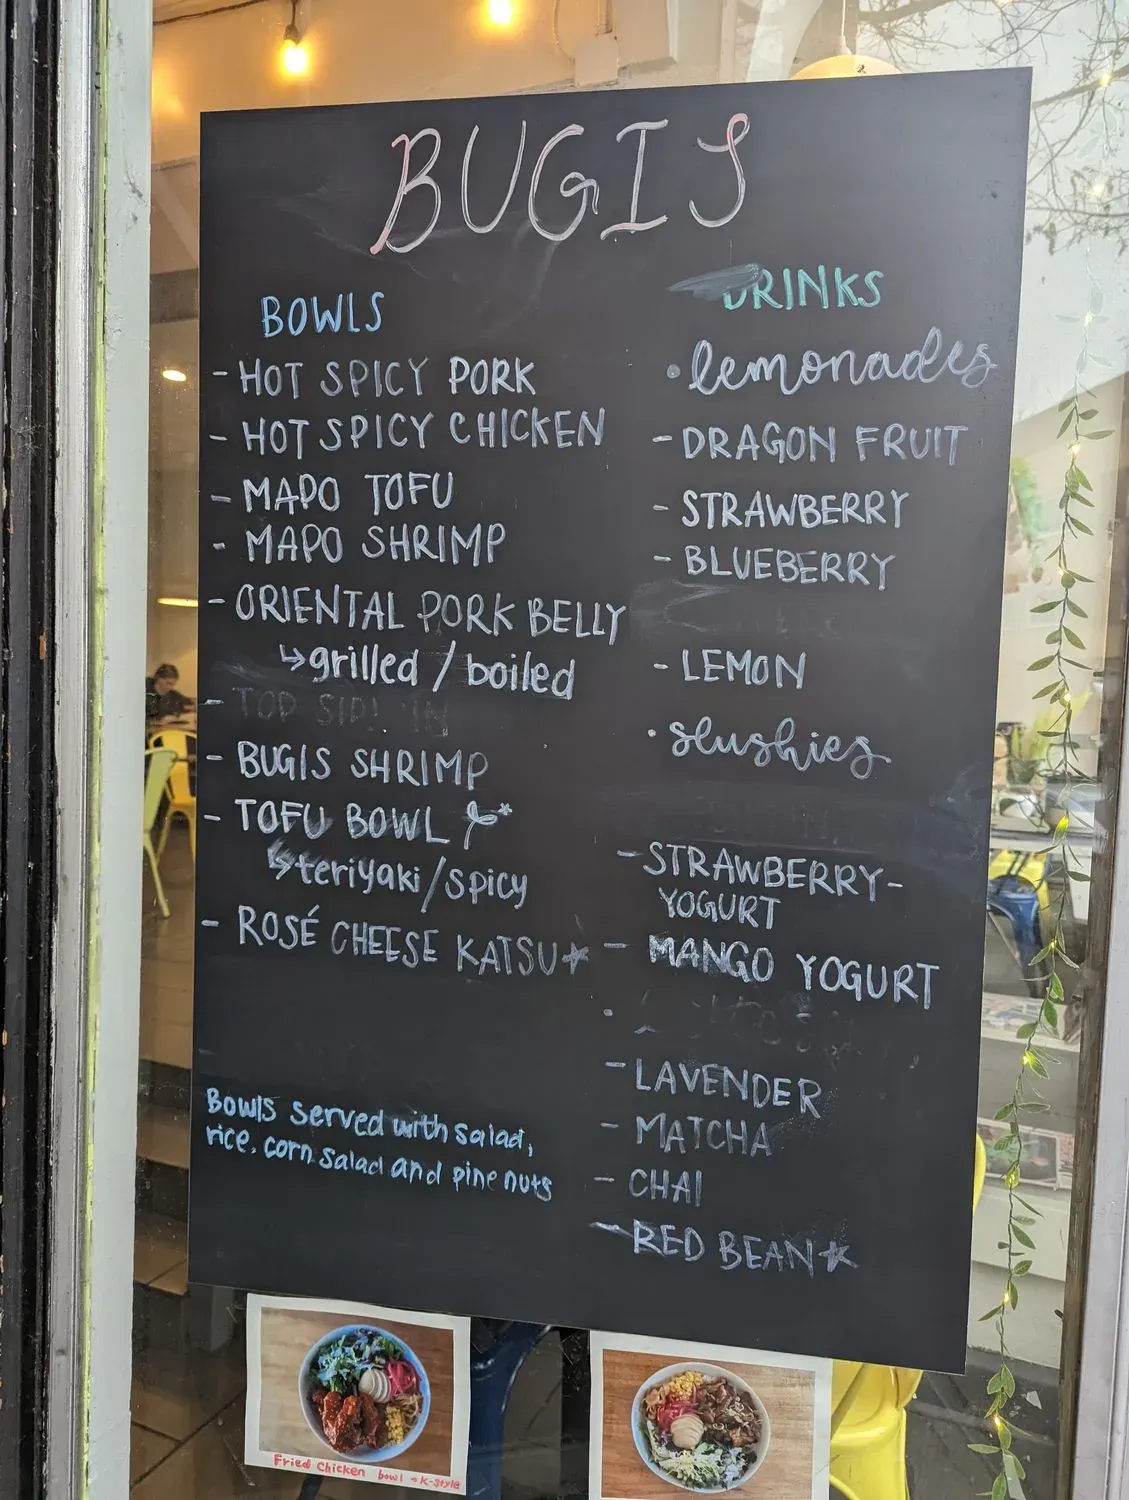 BUGIS
BOWLS
- HOT SPICY PORK
- HOT SPICY CHICKEN
- MAPO TOFU
- MAPO SHRIMP
- ORIENTAL PORK BELLY
↳ grilled / boiled
- TOP
- BUGIS SHRIMP
- TOFU BOWL
↳ teriyaki/spicy
- ROSÉ CHEESE KATSU★
Bowls served with salad,
rice, corn salad and pine nuts
DRINKS
• lemonades
- DRAGON FRUIT
- STRAWBERRY
- BLUEBERRY
- LEMON
• slushies
- STRAWBERRY-
YOGURT
- MANGO YOGURT
- LAVENDER
- MATCHA
- CHAI
- RED BEAN★
Fried Chicken bowl → K-style